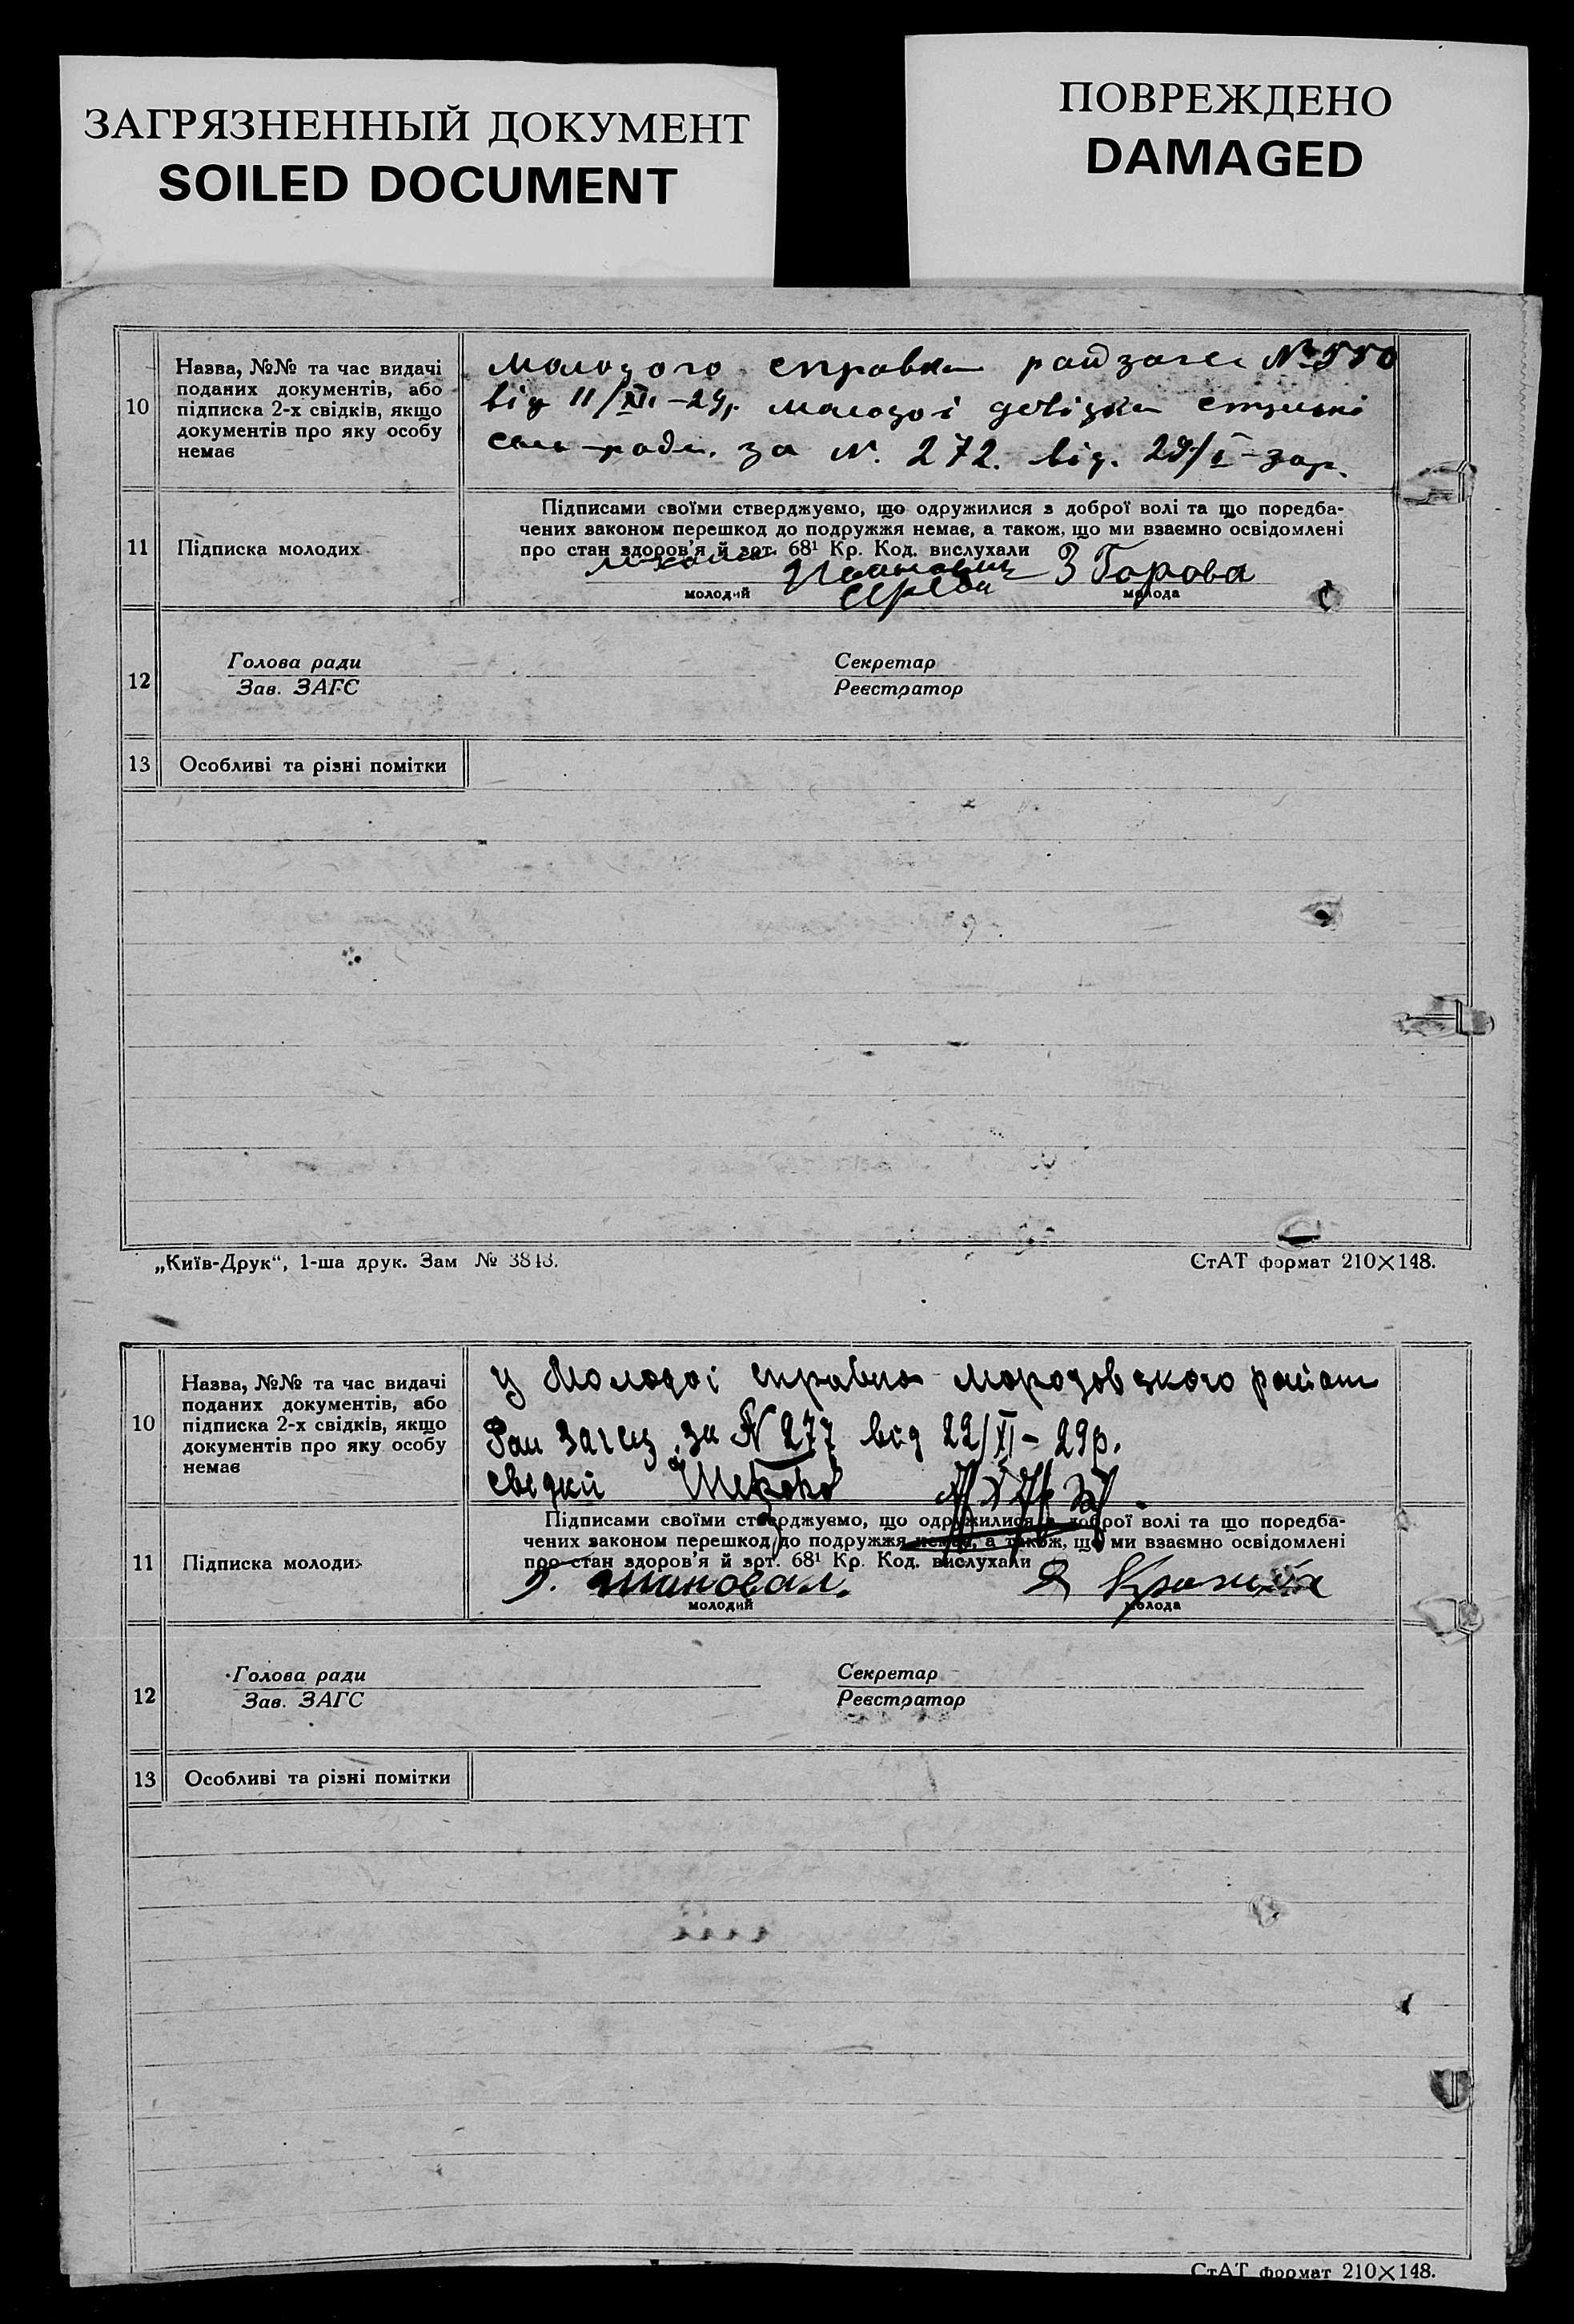 ЗАГРЯЗНЕННЫЙ ДОКУМЕНТ
SOILED DOCUMENT
ПОВРЕЖДЕНО
DAMAGED
10
Назва, №№ та час видачі
поданих документів, або
підписка 2-х свідків, якщо
документів про яку особу
немає
молодого справка райзагса № 550
від 11/XII-29р. молодої довідка
сельради за N. 272. від. 29/I-30р.
11
Підписка молодих
Підписами своїми стверджуємо, що одружилися з доброї волі та що поредба-
чених законом перешкод до подружжя немає, а також, що ми взаємно освідомлені
про стан здоров'я й арт. 68¹ Кр. Код. вислухали
З Горова
молодий
молода
12
Голова ради
Зав. ЗАГС
Секретар
Реєстратор
13
Особливі та різні помітки
„Київ-Друк“, 1-ша друк. Зам № 3843.
СтАТ формат 210×148.
10
Назва, №№ та час видачі
поданих документів, або
підписка 2-х свідків, якщо
документів про яку особу
немає
у Молодої справка Морозовского
за N 277 від 22/XI-29р.
сведки
11
Підписка молодих
Підписами своїми стверджуємо, що одружилися з доброї волі та що поредба-
чених законом перешкод до подружжя немає, а також, що ми взаємно освідомлені
про стан здоров'я й арт. 68¹ Кр. Код. вислухали
молодий
молода
12
Голова ради
Зав. ЗАГС
Секретар
Реєстратор
13
Особливі та різні помітки
СтАТ формат 210×148.